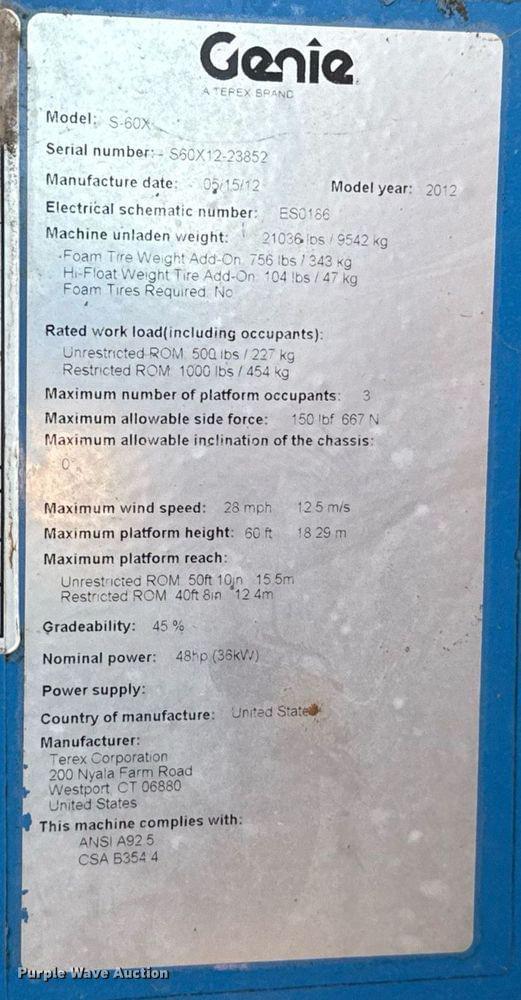 Genie
A TEREX BRAND
Model: S-60X
Serial number: S60X12-23852
Manufacture date: 05/15/12 Model year: 2012
Electrical schematic number: ES0186
Machine unladen weight: 21036 lbs / 9542 kg
Foam Tire Weight Add-On: 756 lbs / 343 kg
Hi-Float Weight Tire Add-On: 104 lbs / 47 kg
Foam Tires Required: No
Rated work load(including occupants):
Unrestricted ROM: 500 lbs / 227 kg
Restricted ROM: 1000 lbs / 454 kg
Maximum number of platform occupants: 3
Maximum allowable side force: 150 lbf 667 N
Maximum allowable inclination of the chassis:
0°
Maximum wind speed: 28 mph 12.5 m/s
Maximum platform height: 60 ft 18.29 m
Maximum platform reach:
Unrestricted ROM: 50ft 10in 15.5m
Restricted ROM: 40ft 8in 12.4m
Gradeability: 45 %
Nominal power: 48hp (36kW)
Power supply:
Country of manufacture: United States
Manufacturer:
Terex Corporation
200 Nyala Farm Road
Westport, CT 06880
United States
This machine complies with:
ANSI A92.5
CSA B354.4
Purple Wave Auction